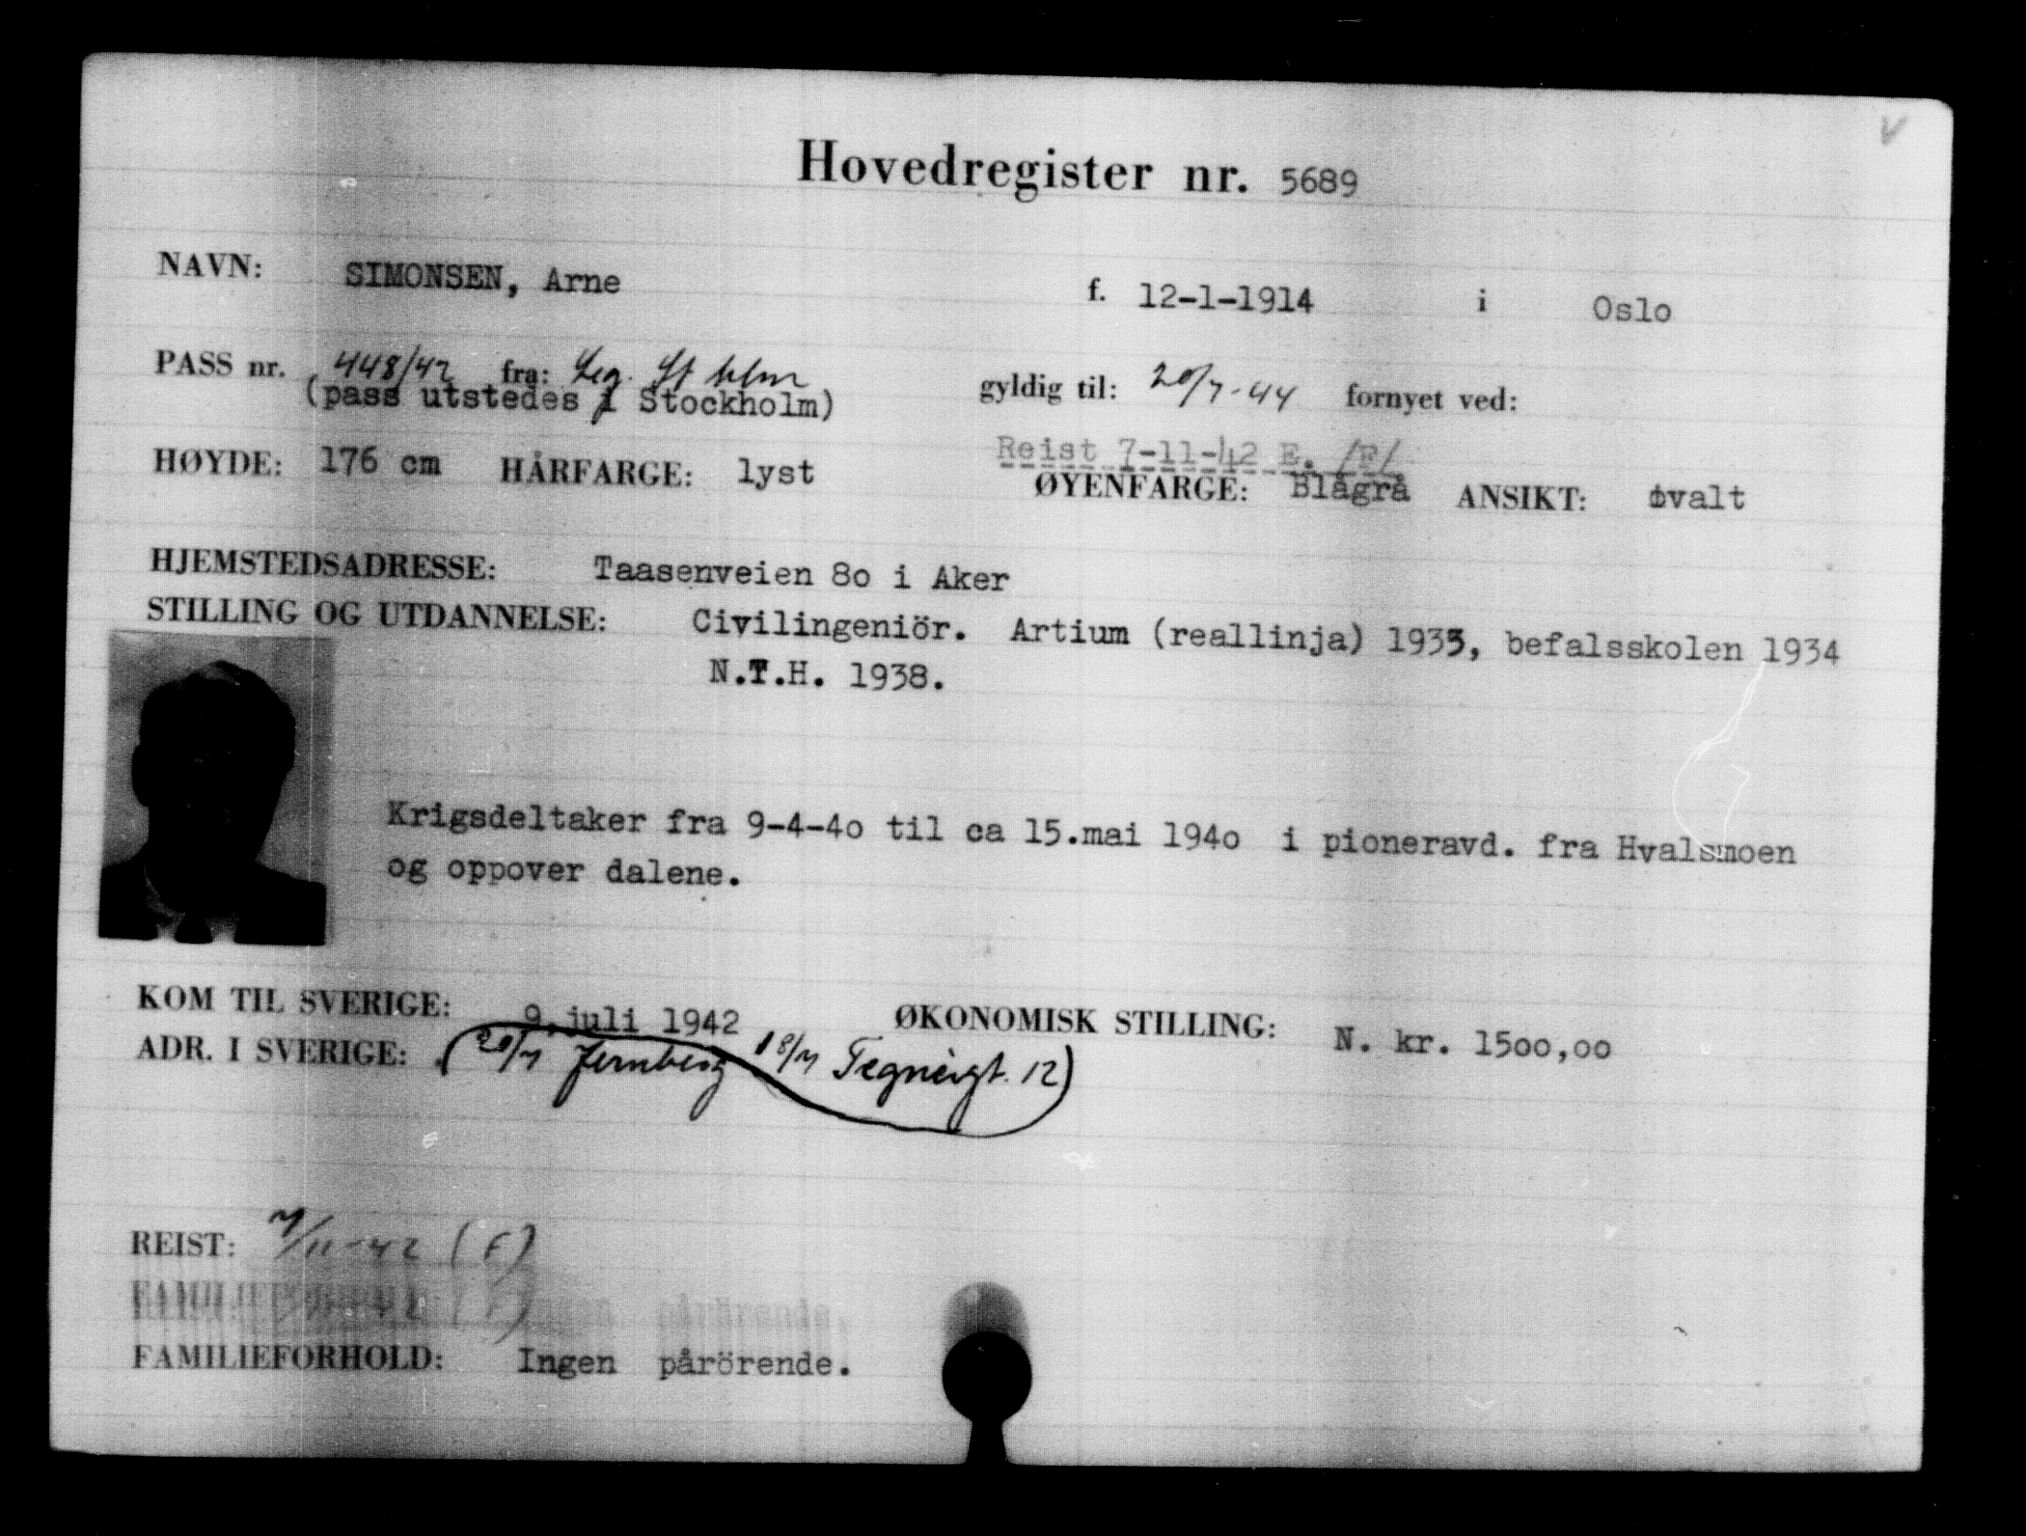 Hovedregister nr. 5689
NAVN: SIMONSEN, Arne f. 12-1-1914 i Oslo
PASS nr. 448/42 fra: Leg. St hlm gyldig til: 20/7-44 fornyet ved:
(pass utstedes i Stockholm)
Reist 7-11-42 E. /F/
HØYDE: 176 cm HÅRFARGE: lyst ØYENFARGE: Blågrå ANSIKT: ovalt
HJEMSTEDSADRESSE: Taasenveien 80 i Aker
STILLING OG UTDANNELSE: Civilingeniör. Artium (reallinja) 1933, befalsskolen 1934
N.T.H. 1938.
Krigsdeltaker fra 9-4-40 til ca 15.mai 1940 i pioneravd. fra Hvalsmoen
og oppover dalene.
KOM TIL SVERIGE: 9.juli 1942 ØKONOMISK STILLING: N. kr. 1500,00
ADR. I SVERIGE: (20/7 Jernberg 18/7 Tegnérgt. 12)
REIST: 7/11-42 (F)
FAMILIEFORHOLD: Ingen pårörende.